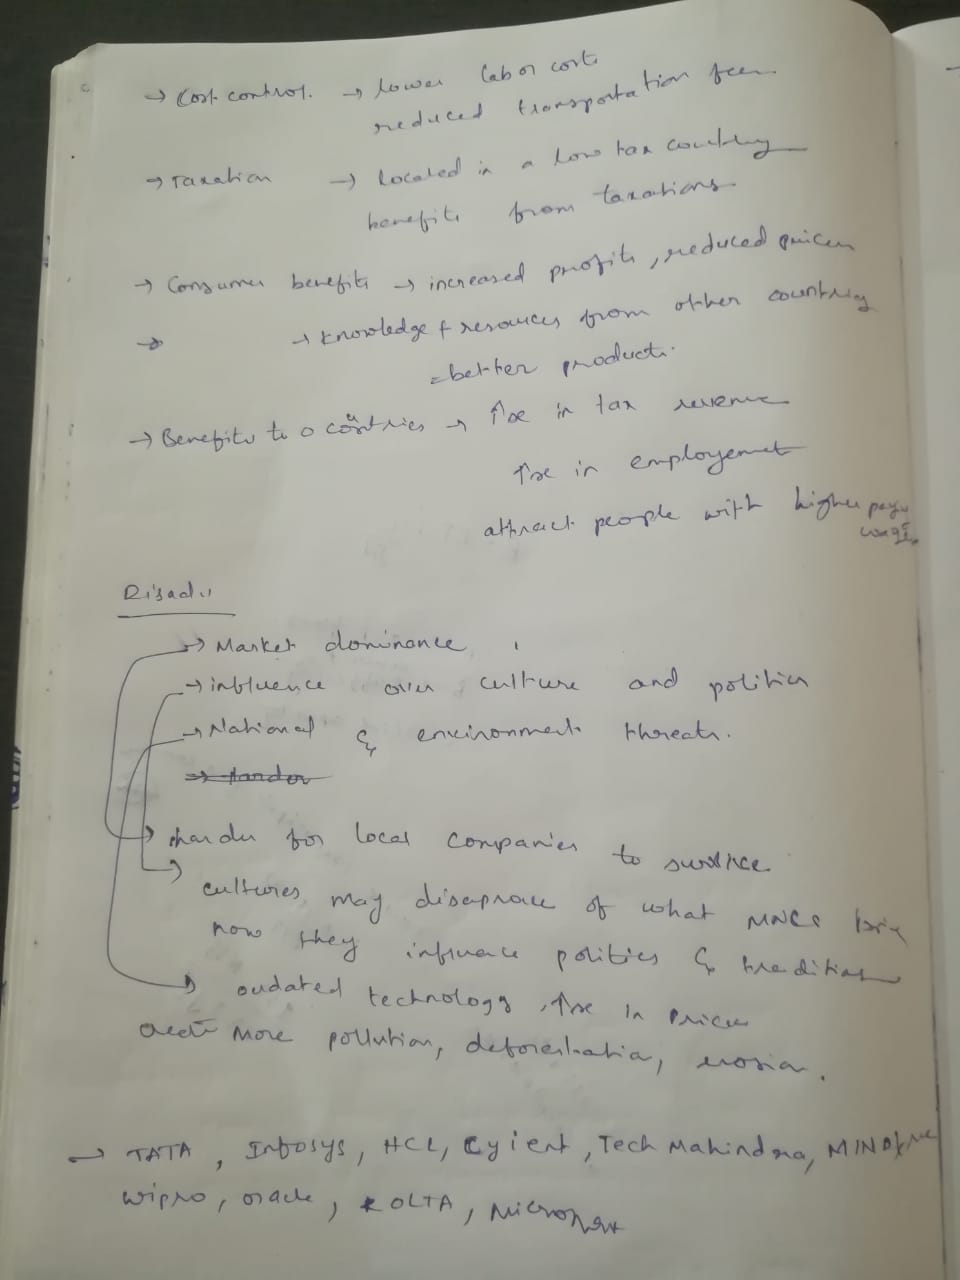 → Cost control. → lower labor costs
reduced transportation fees
→ Taxation → located in a low tax country
benefits from taxations
→ Consumer benefits → increased profits, reduced prices
→ → knowledge & resources from other country
= better products.
→ Benefits to countries → ↑se in tax revenue
↑se in employemet
attract people with higher pay
wages
Disadv.
→ Market dominance
→ influence over culture and politics
→ National & environments threats.
harder for local companies to survice
cultures may disaprove of what MNCs bring
how they influence politics & traditions
oudated technology, ↑se in prices
create more pollution, deforestation, erosion.
→ TATA, Infosys, HCL, Cyient, Tech Mahindra, MINDtree
wipro, oracle, ROLTA, Micromax